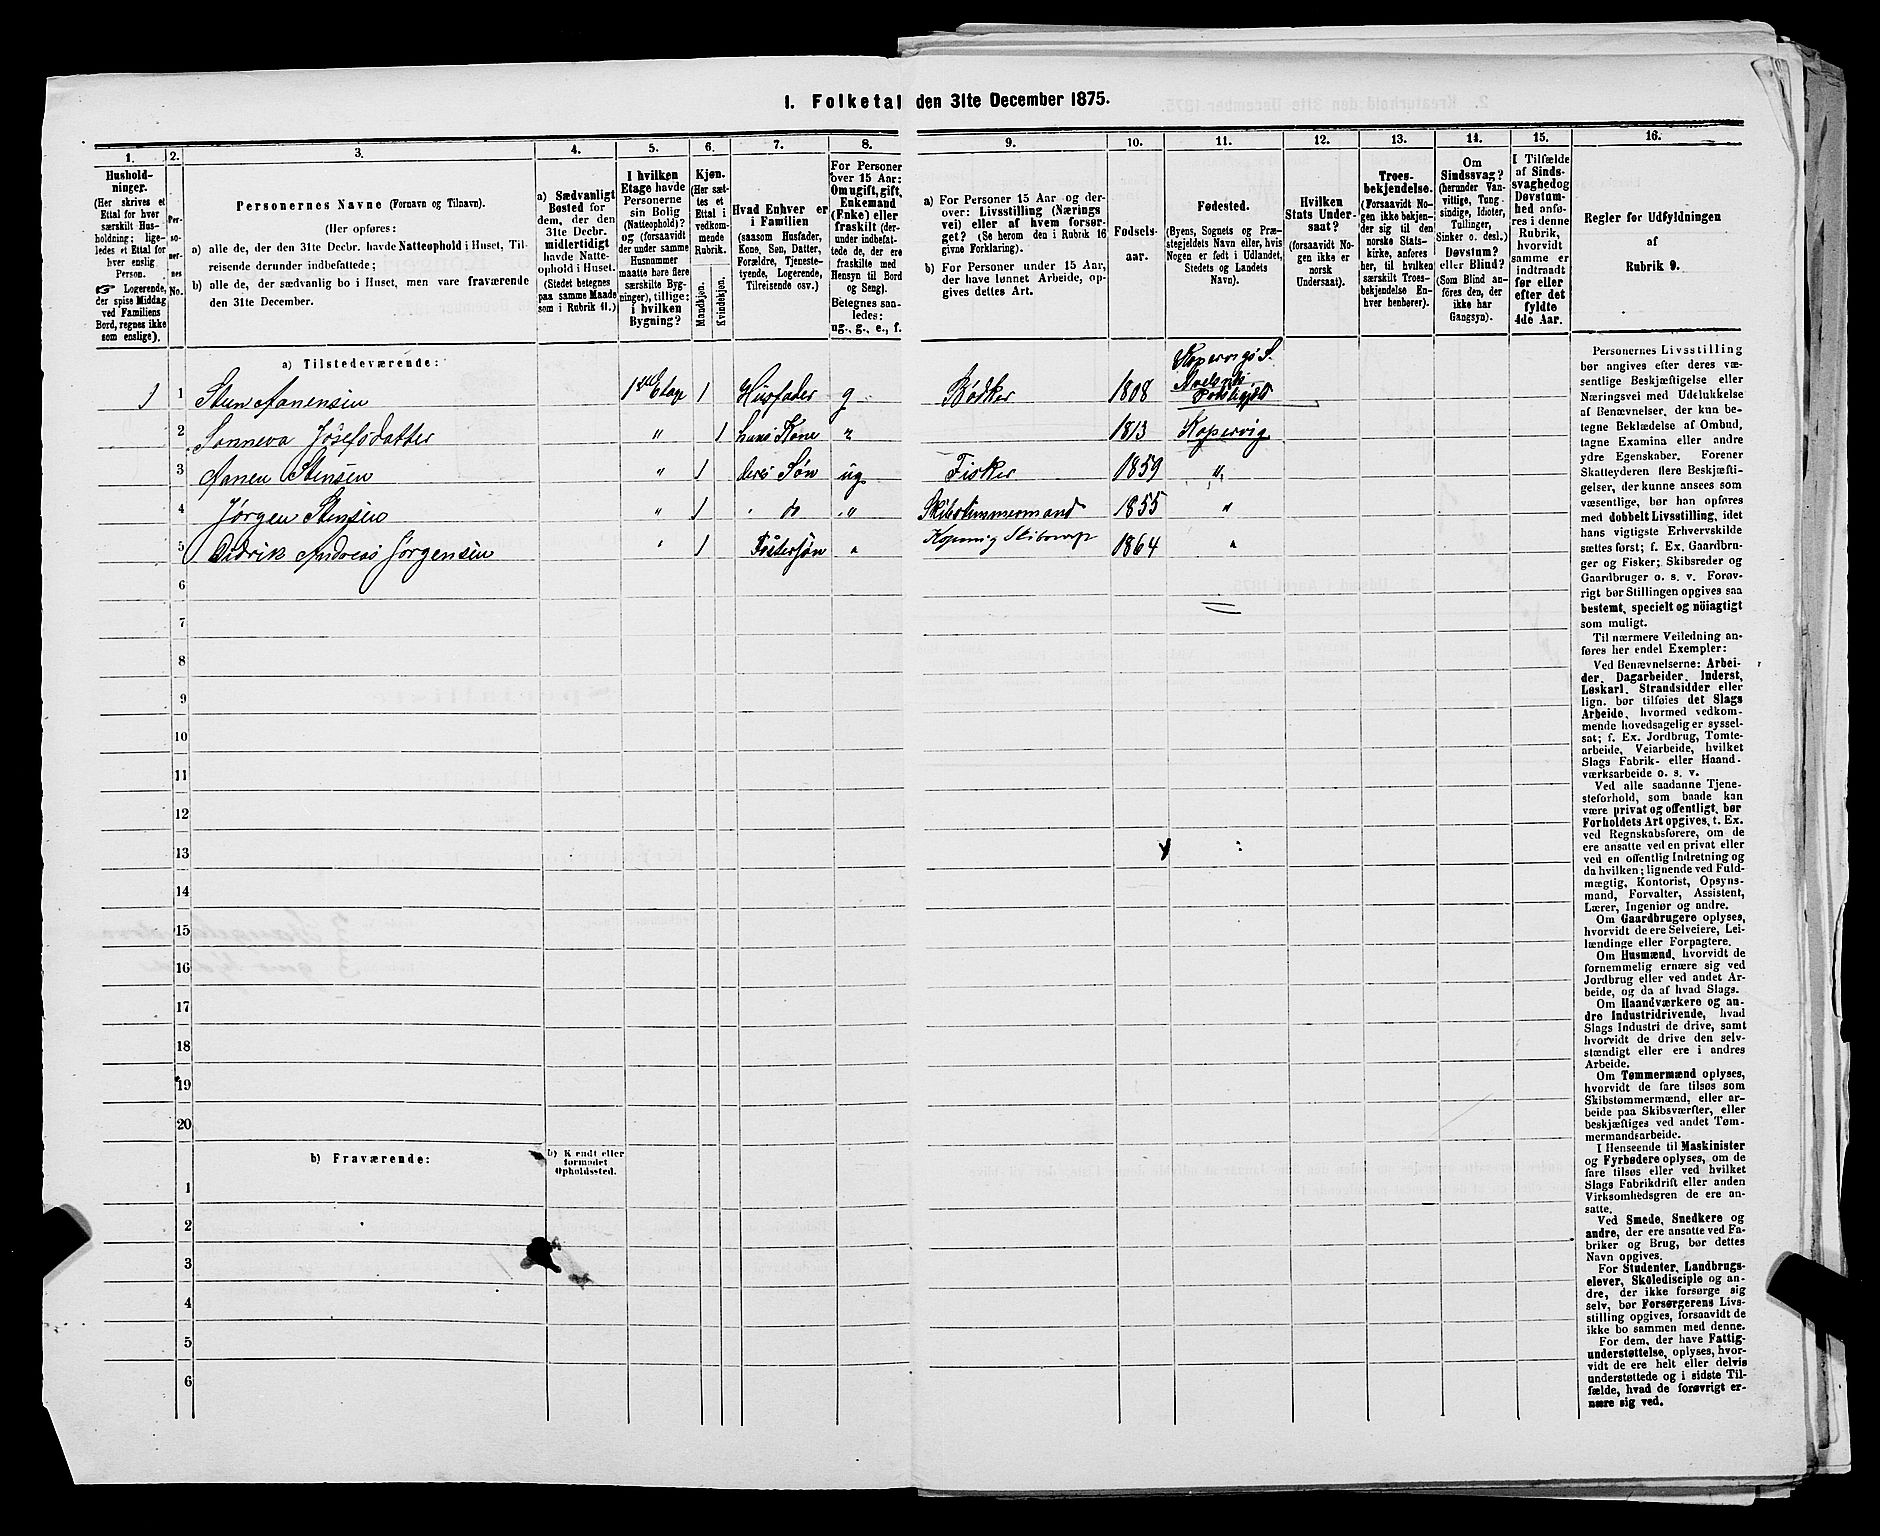 1. Folketal den 31te December 1875.
1. 2. 3. 4. 5. 6. 7. 8. 9. 10. 11. 12. 13. 14. 15. 16.
Hushold-
ninger.
(Her skrives et
Ettal for hver
særskilt Hus-
holdning; lige-
ledes et Ettal for
hver enslig
Person.
☞ Logerende,
der spise Middag
ved Familiens
Bord, regnes ikke
som enslige).
Per-
so-
ner-
nes
No.
Personernes Navne (Fornavn og Tilnavn).
(Her opføres:
a) alle de, der den 31te Decbr. havde Natteophold i Huset, Til-
reisende derunder indbefattede;
b) alle de, der sædvanlig bo i Huset, men vare fraværende
den 31te December.
a) Sædvanligt
Bosted for
dem, der den
31te Decbr.
midlertidigt
havde Natte-
ophold i Huset.
(Stedet betegnes
paa samme Maade
som i Rubrik 11.)
I hvilken
Etage havde
Personerne
sin Bolig
(Natteophold)?
og (forsaavidt
der under samme
Husnummer
maatte høre flere
særskilte Byg-
ninger), tillige:
i hvilken
Bygning?
Kjøn.
(Her sæt-
tes et
Ettal i
vedkom-
mende
Rubrik.
Mandkjøn.
Kvindekjøn.
Hvad Enhver er
i Familien
(saasom Husfader,
Kone, Søn, Datter,
Forældre, Tjeneste-
tyende, Logerende,
Tilreisende osv.)
For Personer
over 15 Aar:
Om ugift, gift,
Enkemand
(Enke) eller
fraskilt (der-
under indbefat-
tede de, der ere
fraskilte med
Hensyn til Bord
og Seng).
Betegnes saa-
ledes:
ug., g., e., f.
a) For Personer 15 Aar og der-
over: Livsstilling (Nærings
vei) eller af hvem forsør-
get? (Se herom den i Rubrik 16
givne Forklaring).
b) For Personer under 15 Aar,
der have lønnet Arbeide, op-
gives dettes Art.
Fødsels-
aar.
Fødested.
(Byens, Sognets og Præ-
stegjeldets Navn eller, hvis
Nogen er født i Udlandet,
Stedets og Landets
Navn).
Hvilken
Stats Under-
saat?
(forsaavidt No-
gen ikke er
norsk
Undersaat).
Troes-
bekjendelse.
(Forsaavidt No-
gen ikke bekjen-
der sig til den
norske Stats-
kirke, anføres
her, til hvilken
særskilt Troes-
bekjendelse En-
hver henhører).
Om
Sindssvag?
(herunder Van-
vittige, Tung-
sindige, Idioter,
Tullinger,
Sinker o. desl.)
Døvstum?
eller Blind?
(Som Blind an-
føres den, der
ikke har
Gangsyn).
I Tilfælde
af Sinds-
svaghed og
Døvstum-
hed anfø-
res i denne
Rubrik,
hvorvidt
samme er
indtraadt
før eller
efter det
fyldte
4de Aar.
Regler for Udfyldningen
af
Rubrik 9.
a) Tilstedeværende:
1 1 Steen Aanensen 1ste Etage 1 Husfader g Bødker 1808 Kopervigs S. Avelsnæs Præstegjeld
2 Sonneva Josefsdatter " 1 hans Kone " 1813 Kopervig
3 Aanen Stensen " 1 deres Søn ug Fisker 1859 "
4 Jørgen Stensen " 1 " do " Skibstømmermand 1855 "
5 Didrik Andreas Jørgensen " 1 Fostersøn " 1864 "
6
7
8
9
10
11
12
13
14
15
16
17
18
19
20
b) Fraværende:
b) Kjendt eller
formodet
Opholdssted.
1
2
3
4
5
6
Personernes Livsstilling
bør angives efter deres væ-
sentlige Beskjæftigelse eller
Næringsvei med Udelukkelse
af Benævnelser, der kun be-
tegne Beklædelse af Ombud,
tagne Examina eller andre
ydre Egenskaber. Forener
Skatteyderen flere Beskjæfti-
gelser, der kunne ansees som
væsentlige, bør han opføres
med dobbelt Livsstilling, idet
hans vigtigste Erhvervskilde
sættes først; f. Ex. Gaardbru-
ger og Fisker; Skibsreder og
Gaardbruger o. s. v. Forøv-
rigt bør Stillingen opgives saa
bestemt, specielt og nöiagtigt
som muligt.
Til nærmere Veiledning an-
føres her endel Exempler:
Ved Benævnelserne: Arbei-
der, Dagarbeider, Inderst,
Løskarl, Strandsidder eller
lign. bør tilføies det Slags
Arbeide, hvormed vedkom-
mende hovedsagelig er syssel-
sat; f. Ex. Jordbrug, Tomte-
arbeide, Veiarbeide, hvilket
Slags Fabrik- eller Haand-
værksarbeide o. s. v.
Ved alle saadanne Tjene-
steforhold, som baade kan
være privat og offentligt, bør
Forholdets Art opgives, t. Ex.
ved Regnskabsførere, om de
ere ansatte ved en privat eller
ved en offentlig Indretning og
da hvilken; lignende ved Fuld-
mægtig, Kontorist, Opsyns-
mand, Forvalter, Assistent,
Lærer, Ingeniør og andre.
Om Gaardbrugere oplyses,
hvorvidt de ere Selveiere, Lei-
lændinge eller Forpagtere.
Om Husmænd, hvorvidt de
fornemmelig ernære sig ved
Jordbrug eller ved andet Ar-
beide, og da af hvad Slags.
Om Haandværkere og an-
dre Industridrivende, hvad
Slags Industri de drive, samt
hvorvidt de drive den selv-
stændigt eller ere i andres
Arbeide.
Om Tømmermænd oplyses,
hvorvidt de fare tilsøs som
Skibstømmermænd, eller ar-
beide paa Skibsværfter, eller
beskjæftiges ved andet Tøm-
mermandsarbeide.
I Henseende til Maskinister
og Fyrbødere oplyses, om de
fare tilsøs eller ved hvilket
Slags Fabrikdrift eller anden
Virksomhedsgren de ere an-
satte.
Ved Smede, Snedkere og
andre, der ere ansatte ved Fa-
briker og Brug, bør dettes
Navn opgives.
For Studenter, Landbrugs-
elever, Skoledisciple og an-
dre, der ikke forsørge sig
selv, bør Forsørgerens Livs-
stilling opgives, forsaavidt de
ikke bo sammen med denne.
For dem, der have Fattig-
understøttelse, oplyses, hvor-
vidt de ere helt eller delvis
understøttede og i sidste Til-
fælde, hvad de forøvrigt er-
nære sig ved.